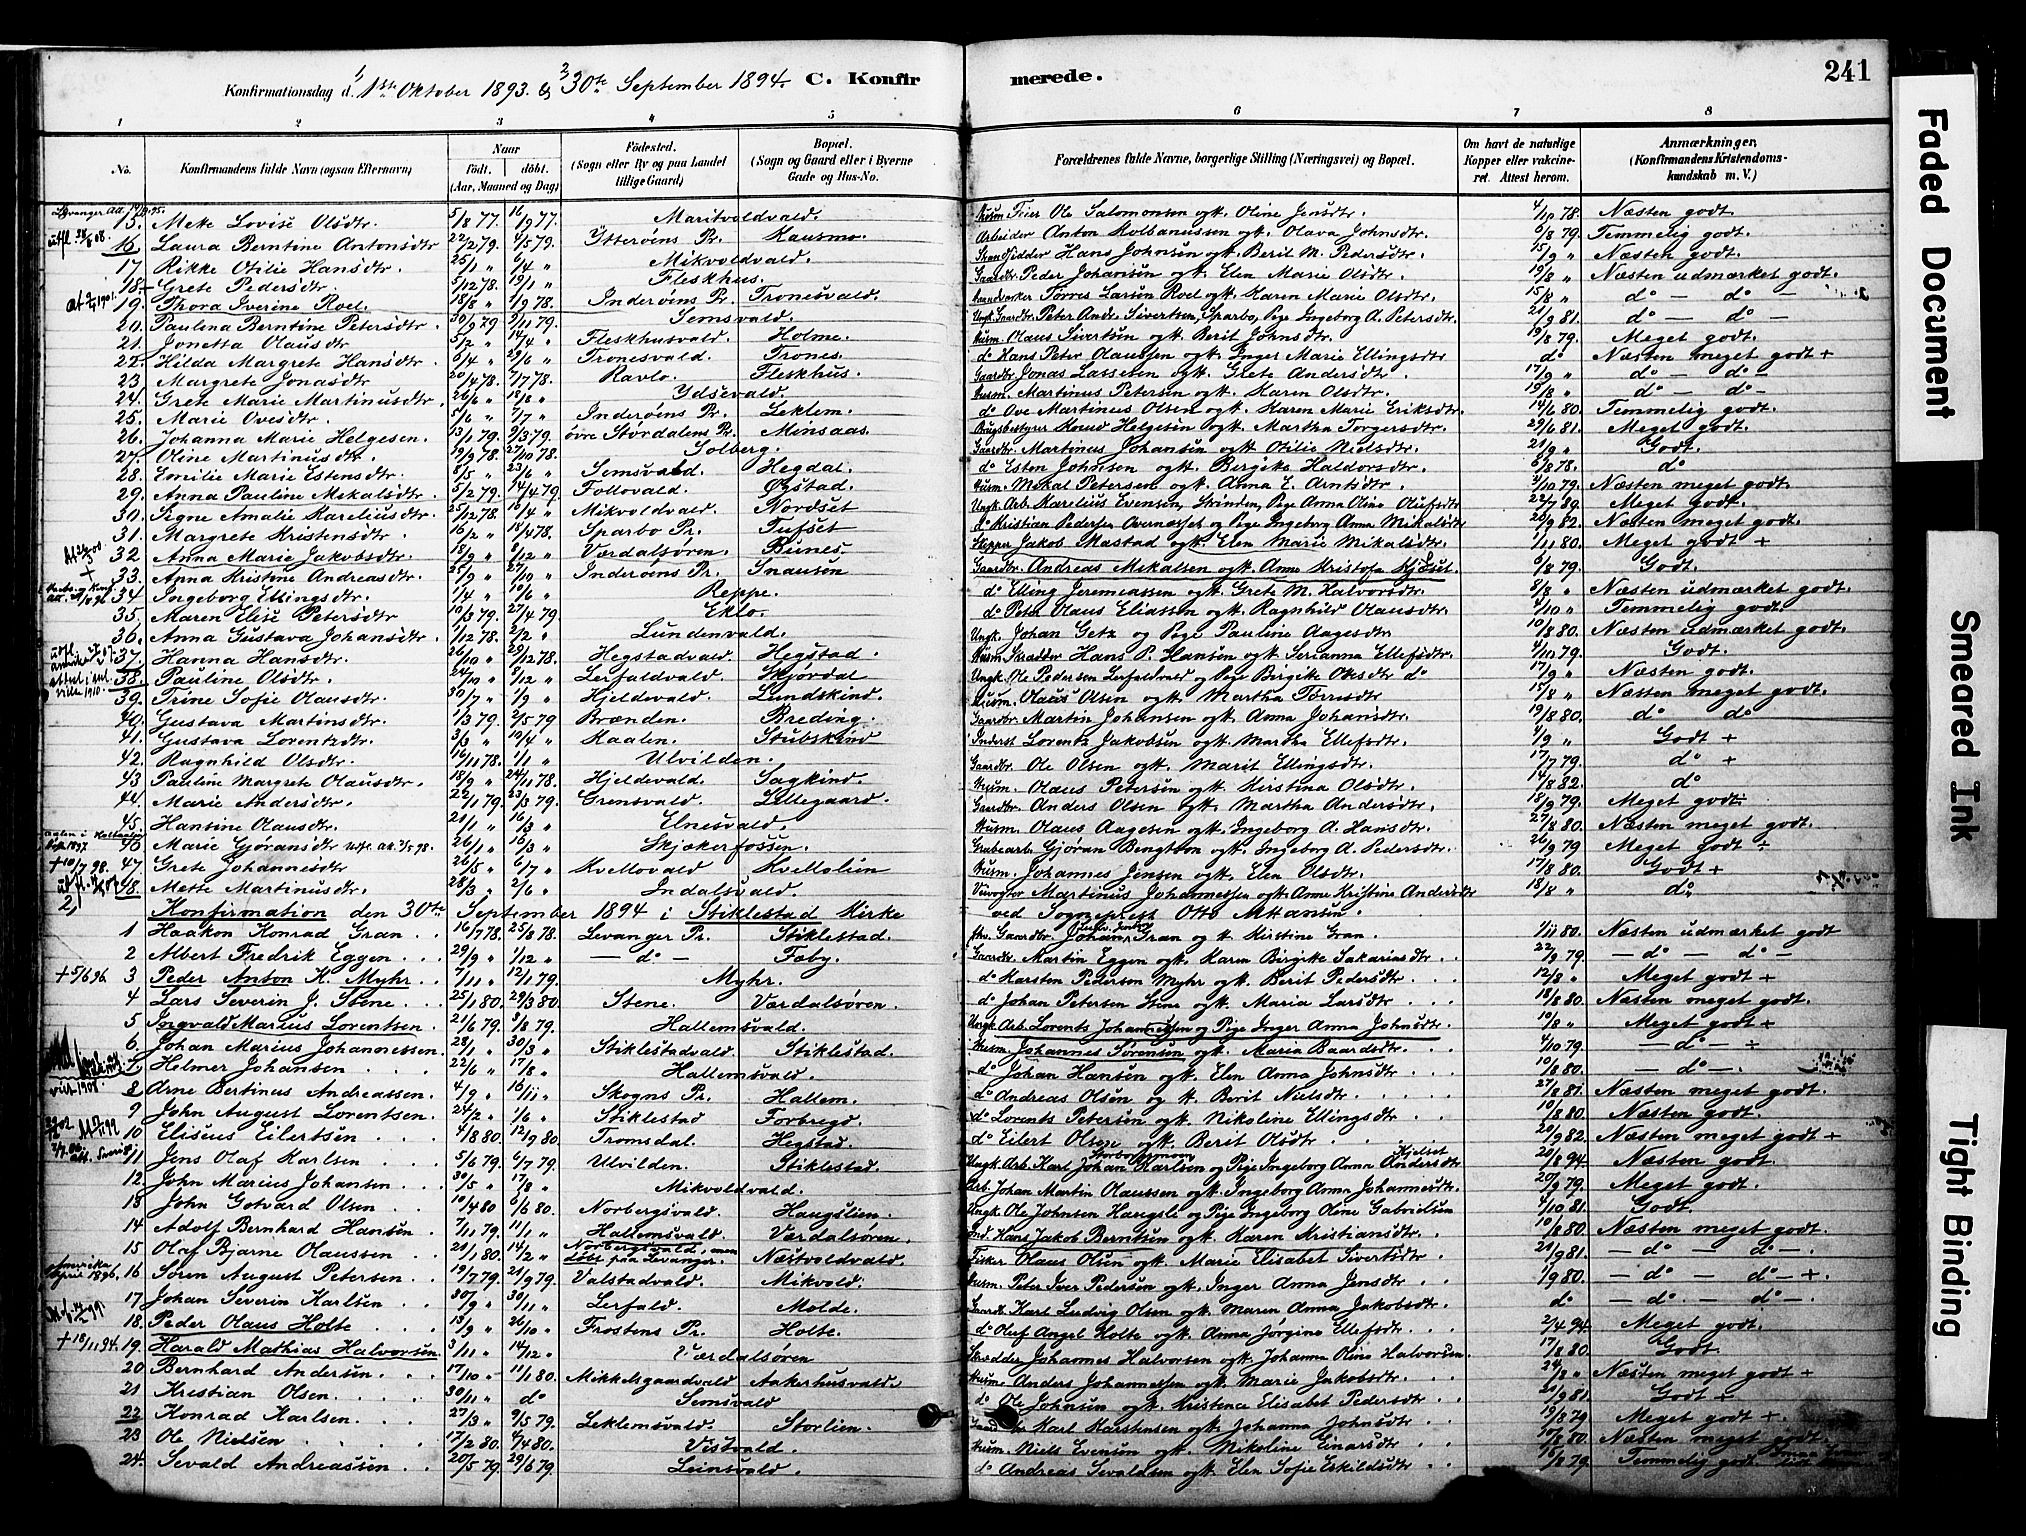 Konfirmationsdag d. 1ste Oktober 1893. og 30te September 1894. C. Konfirmerede. 241
1 2 3 4 5 6 7 8
No. Konfirmandens fulde Navn (ogsaa Efternavn) Naar født. døbt. (Aar, Maaned og Dag) Fødested. (Sogn eller By og paa Landet tillige Gaard) Bopæl. (Sogn og Gaard eller i Byerne Gade og Hus-No. Forældrenes fulde Navne, borgerlige Stilling (Næringsvei) og Bopæl. Om havt de naturlige Kopper eller vaccineret. Attest herom. Anmærkninger, (Konfirmandens Kristendomskundskab m. V.)
15. Mette Lovise Olsdtr. 5/8 77. 16/9 77. Maritvoldvald. Ole Salomonsen og k. Oline Jensdtr. 4/10 78. Næsten godt.
16. Laura Berntine Antonsdtr 22/2 79. 4/5 79. Ytterøens Pr. Kausmo. Arbeider Anton Kolbanussen og k. Olava Johnsdtr. 6/8 79. Temmelig godt.
17. Rikke Otilie Hansdtr. 25/1 " 6/4 " Mikvoldvald. Hans Johnsen og k. Berit M. Pedersdtr. 15/9 " Næsten godt.
18. Grete Pedersdtr. 5/12 78. 19/1 " Fleskhus. Gaardbr. Peder Johansen og k. Elen Marie Olsdtr. 19/8 " Næsten udmærket godt.
19. Thora Iverine Roel. 18/8 " 1/9 78. Inderøens Pr. Tronesvald. Tørres Larsen Roel og k. Karen Marie Olsdtr. 15/8 " do — do —
20. Paulina Berntine Petersdtr. 30/9 79 9/11 79. Semsvald. Ungk. Gaardbr. Peter And. Sivertsen, Sparbo, Pige Ingeborg A. Petersdtr. 21/9 81. do — do —
21. Jonetta Olausdtr 5/2 " 14/4 " Fleskhusvald. Holme. Husm. Olaus Sivertsen og k. Berit Johnsdtr. 19/8 79. Meget godt.
22. Hilda Margrete Hansdtr. 6/4 " 29/6 " Tronesvald. Trones. do Hans Peter Olaussen og k. Inger Marie Ellingsdtr do Næsten meget godt +
23. Margrete Jonasdtr 20/4 78. 7/7 78. Ravlo. Fleskhus. Gaardbr. Jonas Lassesen og k. Grete Andersdtr. 17/9 " do — do —
24. Grete Marie Martinusdtr. 26/6 " 18/8 " Ydsevald. Husm. Martinus Petersen og k. Karen Olsdtr. 19/8 " do do —
25. Marie Ovesdtr 5/6 " 7/7 " Inderøens Pr. Leklem. do Ove Martinus Olsen og k. Karen Marie Eriksdtr. 14/6 80. Temmelig godt.
26. Johanna Marie Helgesen. 13/1 79. 9/3 79. øvre Størdalens Pr. Minsaas. Brugsbestyrer Knud Helgesen og k. Martha Torgersdtr. 29/6 81. Meget godt.
27. Oline Martinusdtr. 19/9 78. 27/10 78. Solberg. Gaardbr. Martinus Johansen og k. Otilie Nielsdtr. 21/9 " Godt.
28. Emilie Marie Estensdtr. 8/5 " 23/6 " Semsvald. Hegdal. do Esten Johnsen og k. Birgitte Haldorsdtr. 6/8 78. do
29. Anna Pauline Mikalsdtr. 5/2 79. 14/4 79. Follovald. Øgstad. Husm. Mikal Petersen og k. Anna E. Arntsdtr. 4/10 79. Næsten meget godt.
30. Signe Amalie Kareliusdtr. 25/12 78. 16/4 " Mikvoldvald. Nordset Ungk. Arb. Karelius Evensen, Strinden, Pige Anna Oline Olufsdtr. 22/7 89. Meget godt.
31. Margrete Kristensdtr. 16/2 " 18/4 78. Sparbo Pr. Tufset do Kristian Pedersen Overnesset og Pige Ingeborg Anna Mikalsdtr 20/9 82. Næsten meget godt.
32. Anna Marie Jakobsdtr. 18/9 " 8/12 " Værdalsøren. Bunes. Skipper Jakob Mastad og k. Elen Marie Mikalsdtr. 1/11 80. Meget godt +
33. Anna Kristine Andreasdtr. 25/9 " 27/10 " Inderøens Pr. Snausen Gaardbr. Andreas Mikalsen og k. Anne Kristofa Kjæset. 6/8 79. Godt.
34. Ingeborg Ellingsdtr. 1/4 " 10/6 " Reppe. do Elling Jeremiassen og k. Grete M. Halvorsdtr. 8/8 " Næsten udmærket godt.
35. Maren Elise Petersdtr. 10/3 79. 27/4 79. Eklo. do Peter Olaus Eliassen og k. Ragnhild Olausdtr. 4/10 " Temmelig godt.
36. Anna Gustava Johansdtr. 1/12 78. 2/2 " Lundenvald. Ungk. Johan Getz og Pige Pauline Aagesdtr 10/8 80. Næsten udmærket godt.
37. Hanna Hansdtr. 26/10 " 29/12 78. Hegstadvald. Hegstad. Husm. Skrædder Hans P. Hansen og k. Serianna Ellefsdtr. 4/10 79. Godt.
38. Pauline Olsdtr. 24/10 " 1/12 " Lerfaldvald. Skjørdal Ungk. Ole Pedersen Lerfaldvald og Pige Birgitte Olsdtr do 17/9 " Næsten godt.
39. Trine Sofie Olausdtr. 30/7 " 1/9 " Hjeldevald. Lundskind. Husm. Olaus Olsen og k. Martha Tørresdtr. 15/8 " Næsten meget godt.
40. Gustava Martinsdtr. 1/3 79. 2/5 79 Brænden. Breding. Gaardbr. Martin Johansen og k. Anna Johansdtr. 19/8 80. do do
41. Gustava Lorentzdtr. 3/3 " 10/4 " Maalen. Stubskind Inderst Lorentz Jakobsen og k. Martha Ellefsdtr. 4/9 " Godt +
42. Ragnhild Olsdtr. 16/11 78. 1/1 " Ulvilden. Gaardbr. Ole Olsen og k. Marit Ellingsdtr. 17/7 79. do +
43 Pauline Margrete Olausdtr. 18/9 " 24/11 78. Hjeldevald. Sagkind. Husm. Olaus Petersen og k. Kirstina Olsdtr. 14/8 82. do
44. Marie Andersdtr. 22/1 79. 23/3 79. Grensvald. Lillegaard. Gaardbr. Anders Olsen og k. Martha Andersdtr. 18/9 79. Meget godt
45. Hansine Olausdtr. 21/1 " 16/3 " Elnesvald. Husm. Olaus Aagesen og k. Ingeborg A. Hansdtr. 27/8 80. Næsten meget godt.
46 Marie Gjøransdtr 26/1 " 16/3 " Skjækerfossen. Grubearb. Gjøran Bengtson og k. Ingeborg A. Pedersdtr. 26/9 79 Meget godt +
47. Grete Johannesdtr. 26/5 " 6/7 " Kvellovald Kvelloliin Husm. Johannes Jensen og k. Elen Olsdtr. 17/8 80. Godt +
48. Mette Martinusdtr. 28/3 " 2/6 " Indalsvald. Martinus Johannessen og k. Anne Kristine Andersdtr 18/8 " do
Konfirmation den 30te September 1894 i Stiklestad Kirke ved Sogneprest Otto M. Hansen.
1 Haakon Konrad Gran. 16/7 78. 25/8 78. Levanger Pr. Stiklestad. fhv. Gaardbr. Johan Gran og k. Kirstine Gran. 1/11 80. Næsten udmærket godt
2 Albert Fredrik Eggen. 29/9 " 1/12 " — do — Faby. Gaardbr. Martin Eggen og k. Karen Birgitte Sakariasdtr. 22/9 79. — do — do —
+ 5/6 96. 3 Peder Anton K. Myhr. 7/11 " 12/1 79. Myhr. do Karsten Pedersen Myhr og k. Berit Pedersdtr. 12/8 " Meget godt +
4 Lars Severin J. Stene. 25/1 80. 29/3 80. Stene. Værdalsøren. do Johan Petersen Stene og k. Maria Larsdtr. 18/8 80. Næsten meget godt.
5 Ingvald Marius Lorentsen. 21/6 79. 3/8 79. Hallemsvald. Ungk. Arb. Lorents Johannessen og Pige Inger Anna Johnsdtr. 10/8 " Meget godt +
6. Johan Marius Johannessen. 28/1 " 30/3 " Stiklestadvald. Stiklestad. Husm. Johannes Sørensen og k. Maria Baardsdtr. 4/10 79. — do — +
7. Helmer Johansen. 22/6 " 17/8 " Hallemsvald. do Johan Hansen og k. Elen Anna Johnsdtr. 10/8 80. — do —.
8 Arne Bertinus Andreassen. 4/9 " 16/11 " Skogns Pr. Hallem. do Andreas Olsen og k. Berit Nielsdtr. 27/8 81. Næsten meget godt.
9 John August Lorentsen. 24/2 " 1/6 " Stiklestad Forbregd. do Lorents Petersen og k. Nikoline Ellingsdtr. 10/8 80. Næsten godt.
10 Eliseus Eilertsen. 4/8 80. 12/9 80. Tromsdal. Hegstad. do Eilert Olsen og k. Berit Olsdtr. 20/9 82. Næsten meget godt +
11 Jens Olaf Karlsen. 5/6 79. 6/7 79. Ulvilden. Stiklestad. Ungk. Arb. Karl Johan Karlsen og Pige Ingeborg Anna Andersdtr Kjelset 20/8 94. Næsten godt.
12. John Marius Johansen. 30/5 " 17/8 " Mikvoldvald. Arb. Johan Martin Olaussen og k. Ingeborg Anna Johannesdtr. 20/9 79. Meget godt.
13 John Gotvard Olsen. 10/4 80 6/6 80. Norbergsvald. Haugslien. Ungk. Ole Johnsen Haugsli og Pige Ingeborg Oline Gabrielsen 4/10 81. Godt.
14 Adolf Bernhard Hansen. 7/11 79. 11/1 " Hallemsvald. Værdalsøren. Ind. Hans Jakob Berntsen og k. Karen Kristiansdtr. 10/8 80. Næsten meget godt.
15 Olaf Bjarne Olaussen. 20/1 80. 14/2 " Norbergsvald, men døbt paa Levanger. Næstvoldvald. Fisker Olaus Olsen og k. Marie Elisabet Sivertsdtr. 21/9 81. — do — do —.
16 Søren August Petersen. 19/7 79. 21/9 79. Valstadvald. Mikvold. Husm. Peter Iver Pedersen og k. Inger Anna Jensdtr. 1/9 80. — do — do — +.
17 Johan Severin Karlsen. 30/9 " 30/11 " Lerfald. Molde. Gaardbr. Karl Ludvig Olsen og k. Maren Anna Jakobsdtr. do — do — do —.
18. Peder Olaus Holte. 13/9 " 26/10 " Frostens Pr. Holte. do Oluf Angel Holte og k. Anna Jørgine Ellefsdtr. 2/4 94. Meget godt.
+ 18/11 94. 19. Harald Mathias Halvorsen. 3/11 " 14/12 " Værdalsøren Skrædder Johannes Halvorsen og k. Johanna Oline Halvorsen. 17/8 80. Godt
20 Bernhard Andersen. 17/10 " 11/1 80. Mikkelsgaardvald Aakerhusvald. Husm. Anders Johannessen og k. Marie Jakobsdtr. 24/8 " Næsten meget godt +
21 Kristian Olsen. 30/11 " do Semsvald do Ole Johnsen og k. Kristence Elisabet Pedersdtr. 21/9 81. Godt +
22 Konrad Karlsen. 27/3 " 9/5 79. Leklemsvald. Storlien. Karl Karstensen og k. Johanna Johnsdtr. 19/8 79. Meget godt +.
23 Ole Nielsen. 17/2 80. 4/4 80. Vistvald. Husm. Niels Evensen og k. Nikoline Einarsdtr. 10/8 80. Næsten meget godt.
24. Sevald Andreassen. 20/5 79. 29/6 79. Leinsvald. do Andreas Sevaldsen og k. Elen Sofie Eskildsdtr. 15/8 79. Temmelig godt.
Faded Document
Smeared Ink
Tight Binding